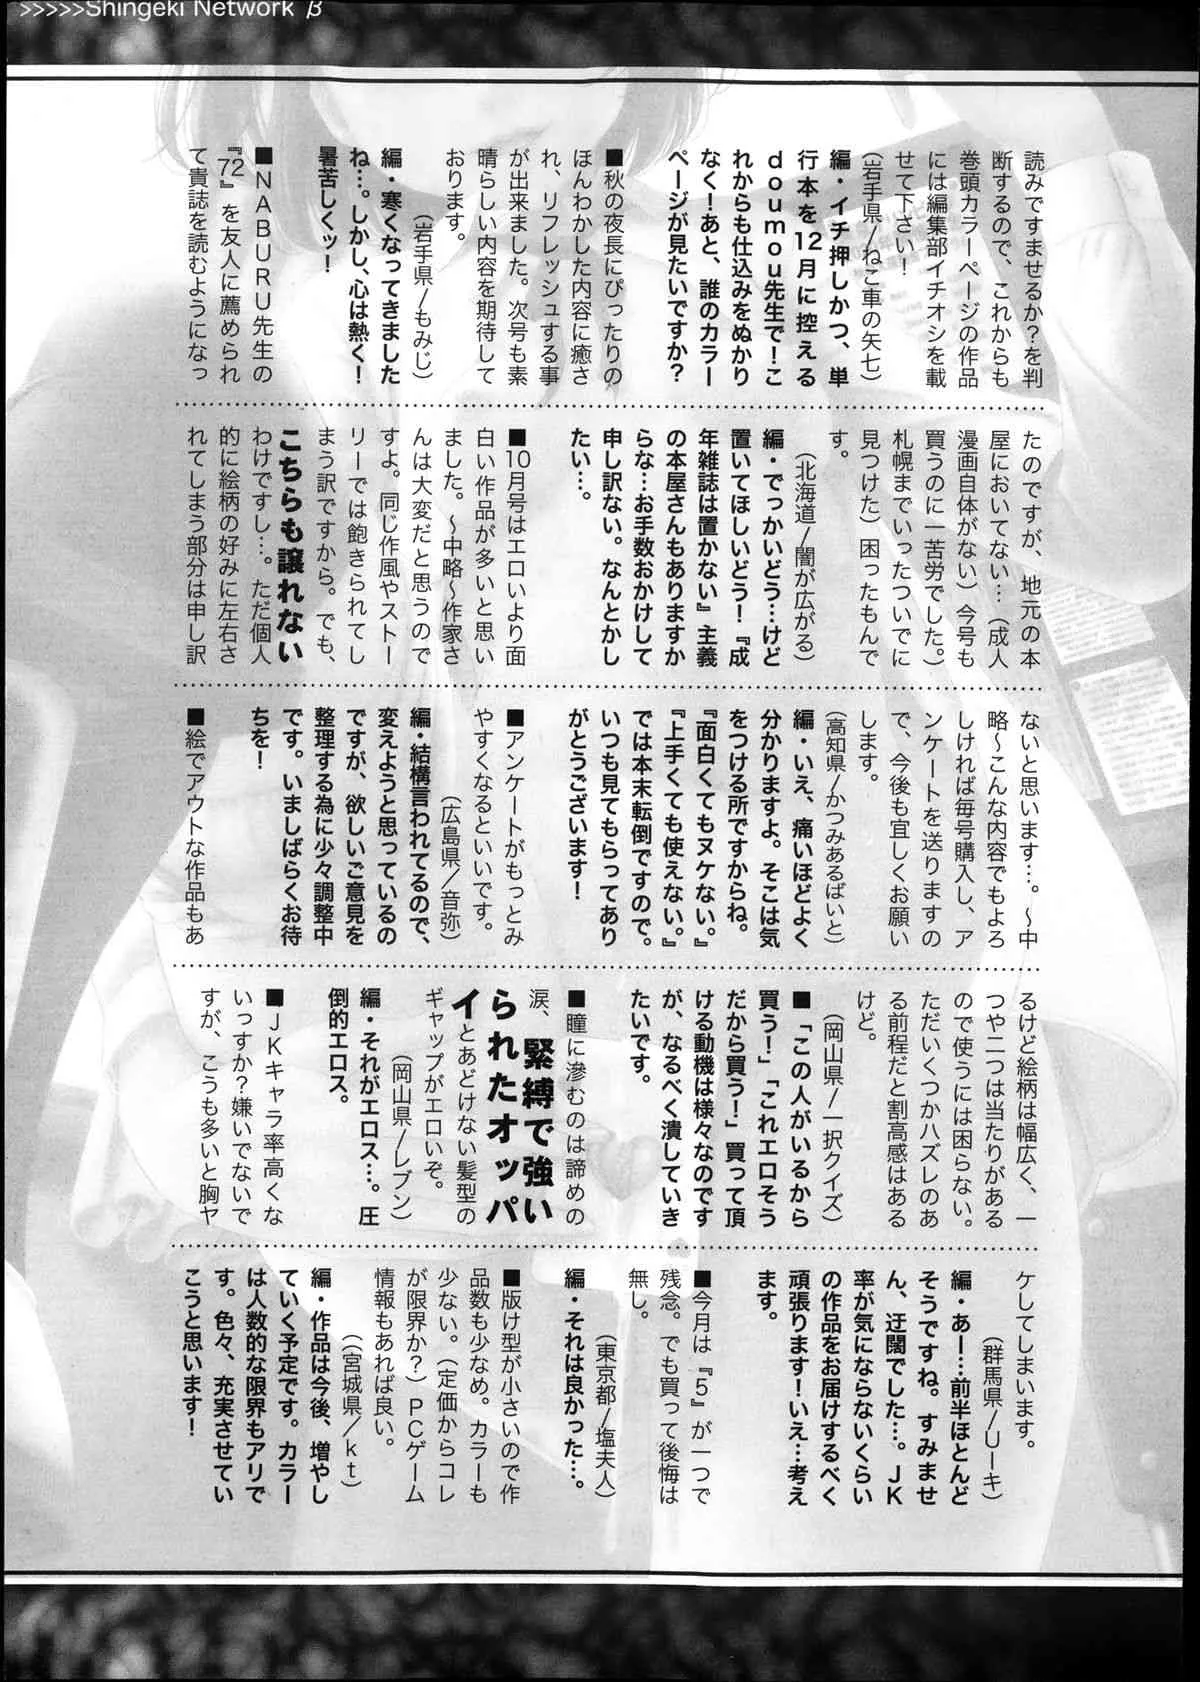 >>>>>Shingeki Network β
読みですませるか?を判
断するので、これからも
巻頭カラーページの作品
には編集部イチオシを載
せて下さい!
(岩手県/ねこ車の矢七)
編・イチ押しかつ、単
行本を12月に控える
doumou先生で!こ
れからも仕込みをぬかり
なく!あと、誰のカラー
ページが見たいですか?
■秋の夜長にぴったりの
ほんわかした内容に癒さ
れ、リフレッシュする事
が出来ました。次号も素
晴らしい内容を期待して
おります。
(岩手県/もみじ)
編・寒くなってきました
ね…。しかし、心は熱く!
暑苦しくッ!
■NABURU先生の
『72』を友人に薦められ
て貴誌を読むようになっ
たのですが、地元の本
屋においてない…(成人
漫画自体がない)今号も
買うのに一苦労でした。
札幌までいったついでに
見つけた)困ったもんで
す。
(北海道/闇が広がる)
編・でっかいどう…けど
置いてほしいどう!『成
年雑誌は置かない』主義
の本屋さんもありますか
らな…お手数おかけして
申し訳ない。なんとかし
たい…。
■10月号はエロいより面
白い作品が多いと思い
ました。～中略～作家さ
んは大変だと思うので
すよ。同じ作風やストー
リーでは飽きられてし
まう訳ですから。でも、
こちらも譲れない
わけですし…。ただ個人
的に絵柄の好みに左右さ
れてしまう部分は申し訳
ないと思います…。～中
略～こんな内容でもよろ
しければ毎号購入し、ア
ンケートを送りますの
で、今後も宜しくお願い
します。
(高知県/かつみあるばいと)
編・いえ、痛いほどよく
分かりますよ。そこは気
をつける所ですからね。
『面白くてもヌケない。』
『上手くても使えない。』
では本末転倒ですので。
いつも見てもらってあり
がとうございます!
■アンケートがもっとみ
やすくなるといいです。
(広島県/音弥)
編・結構言われてるので、
変えようと思っているの
ですが、欲しいご意見を
整理する為に少々調整中
です。いましばらくお待
ちを!
■絵でアウトな作品もあ
るけど絵柄は幅広く、一
つや二つは当たりがある
ので使うには困らない。
ただいくつかハズレのあ
る前程だと割高感はある
けど。
(岡山県/一択クイズ)
■「この人がいるから
買う!」「これエロそう
だから買う!」買って頂
ける動機は様々なのです
が、なるべく潰していき
たいです。
■瞳に滲むのは諦めの
涙、緊縛で強い
られたオッパ
イとあどけない髪型の
ギャップがエロいぞ。
(岡山県/レブン)
編・それがエロス…。圧
倒的エロス。
■JKキャラ率高くな
いっすか?嫌いでないで
すが、こうも多いと胸ヤ
ケしてしまいます。
(群馬県/Uーキ)
編・あー…前半ほとんど
そうですね。すみませ
ん、迂闊でした…。JK
率が気にならないくらい
の作品をお届けするべく
頑張ります!いえ…考え
ます。
■今月は『5』が一つで
残念。でも買って後悔は
無し。
(東京都/塩夫人)
編・それは良かった…。
■版け型が小さいので作
品数も少なめ。カラーも
少ない。(定価からコレ
が限界か?)PCゲーム
情報もあれば良い。
(宮城県/kt)
編・作品は今後、増やし
ていく予定です。カラー
は人数的な限界もアリで
す。色々、充実させてい
こうと思います!